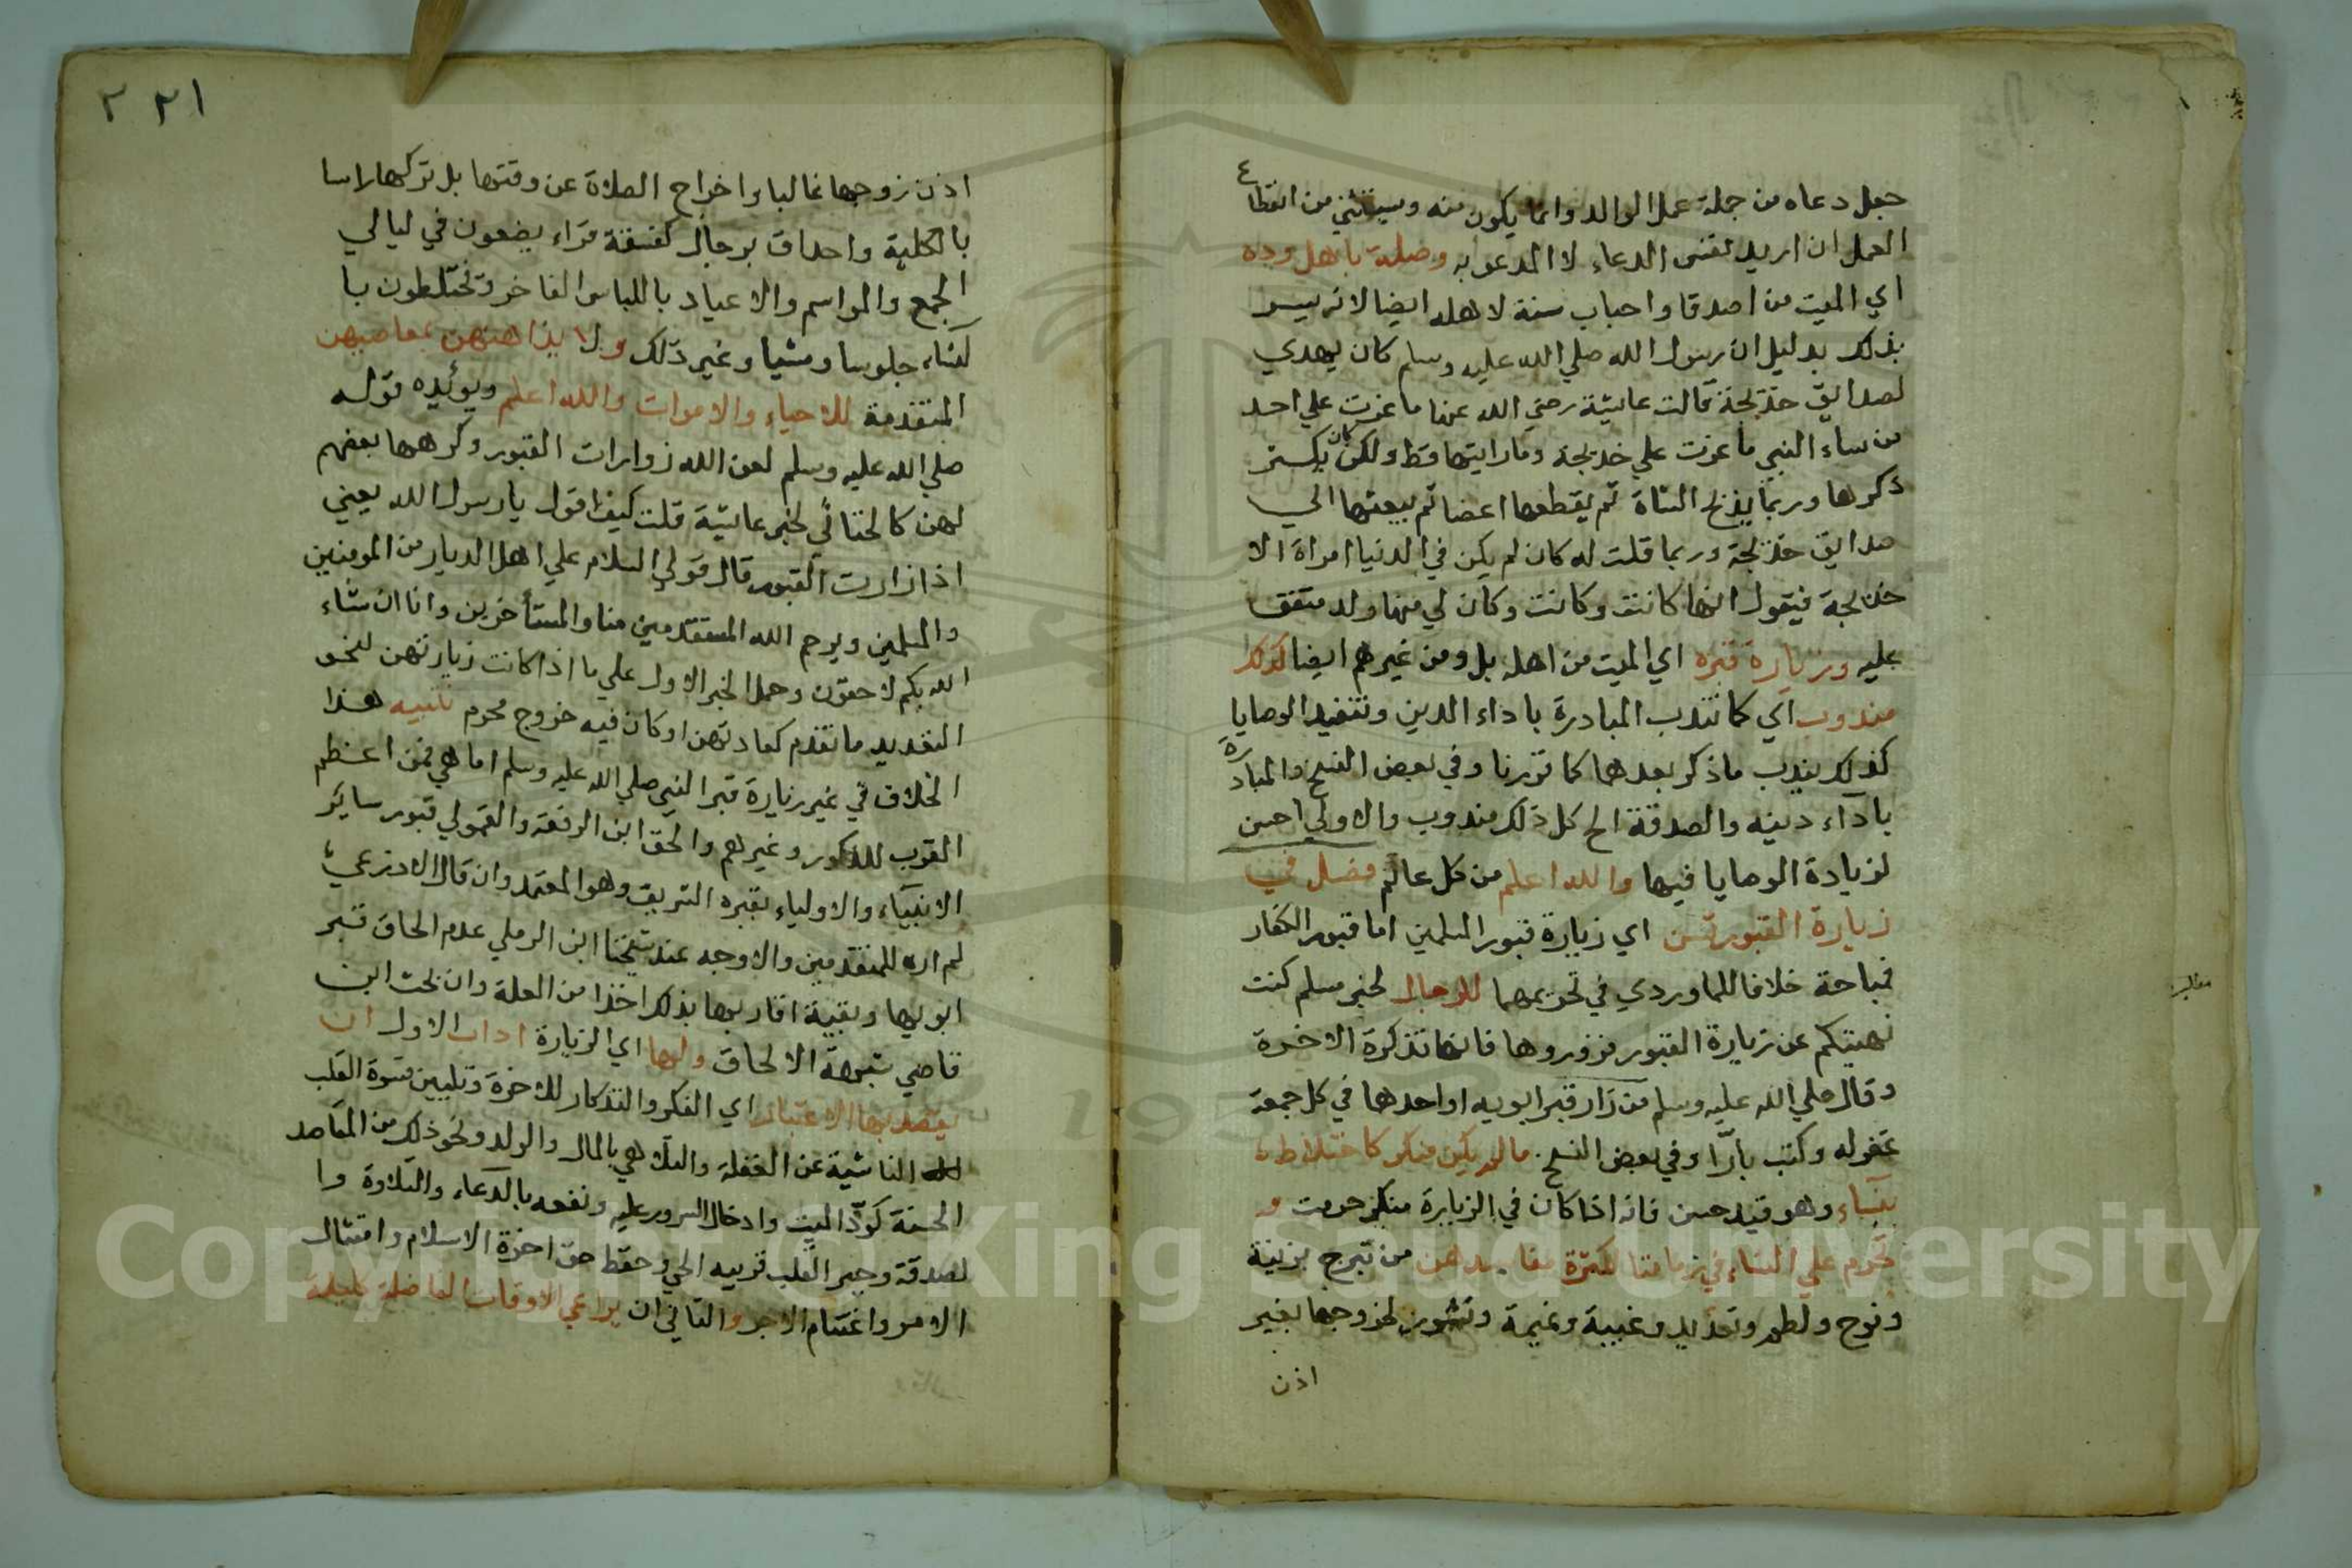 جعل دعاه من جملة عمل الوالد وانما يكون منه ويستثني من انقطاع
العمل ان اريد لقنى الدعاء لا المدعو به وصلة باهل وده
اي الميت من اصدقا واحباب سنة لاهله ايضا لانه يسر
بذلك بدليل ان رسول الله صلي الله عليه وسلم كان يهدي
لصدايق خديجة قالت عايشة رضي الله عنها ما غرت علي احد
من نساء النبي ما غرت علي خديجة وما رايتها قط ولكن كان يكثر
ذكرها وربما يذبح الشاة ثم يقطعها اعضا ثم يبعثها الي
صدايق خديجة وربما قلت له كان لم يكن في الدنيا امراة الا
خديجة فيقول انها كانت وكانت وكان لي منها ولد متفق
عليه وزيارة قبره اي الميت من اهله بل ومن غيرهم ايضا كذلك
مندوب اي كما تندب المبادرة باداء الدين وتنفيد الوصايا
كذلك يندب ما ذكر بعدها كما قررنا وفي بعض النسخ والمبادرة
بآداء دينه والصدقة الخ كل ذلك مندوب والاولي احسن
لزيادة الوصايا فيها والله اعلم من كل عالم فصل في
زيارة القبور تسن اي زيارة قبور المسلمين اما قبور الكفار
فمباحة خلافا للماوردي في تحريمهما للرجال لخبر مسلم كنت
نهيتكم عن زيارة القبور فزوروها فانها تذكرة الاخرة
وقال صلي الله عليه وسلم من زار قبر ابويه او احدهما في كل جمعة
غفر له وكتب بارّا وفي بعض النسخ ما لم يكن منكر كاختلاط
بنساء وهو قيد حسن فانه اذا كان في الزيارة منكر حرمت و
تحرم علي النساء في زماننا لكثرة مفاسدهن من تبرج بزينة
ونوح ولطم وتعديد وغيبة ونميمة ونشوز لزوجها بغير
اذن
مقابلة
٢٢١ ٢
اذن زوجها غالبا واخراج الصلاة عن وقتها بل تركها راسا
بالكلية واحداق برجال كفسقة قراء يضعون في ليالي
الجمع والمواسم والاعياد باللباس الفاخر وتختلطون با
لنساء جلوسا ومشيا وغير ذلك ولا يذاهنهن بمعاصيهن
المتقدمة للاحياء والاموات والله اعلم ويؤيده قوله
صلي الله عليه وسلم لعن الله زوارات القبور وكرهها بعضهم
لهن كالخناثي لخبر عايشة قلت كيف اقول يا رسول الله يعني
اذا زارت القبور قال قولي السلام علي اهل الديار من المومنين
والمسلمين ويرحم الله المستقدمين منا والمستأخرين وانا ان شاء
الله بكم لاحقون وحمل الخبر الاول علي ما اذا كانت زيارتهن لنحو
التعديد ما تقدم كعادتهن او كان فيه خروج محرم تنبيه هذا
الخلاف في غير زيارة قبر النبي صلي الله عليه وسلم اما هي فمن اعظم
القرب للذكور وغيرهم والحق ابن الرفعة والقمولي قبور ساير
الانبيآء والاولياء بقبره الشريف وهو المعتمد وان قال الاذرعي
لم اره للمتقدمين والاوجه عند شيخنا ابن الرملي عدم الحاق قبر
ابويها وبقية اقاربها بذلك اخذا من العلة وان بحث ابن
قاضي شهبة الالحاق ولها اي الزيارة اداب الاول ان
يقصد بها الاعتبار اي الفكر والتذكار للاخرة وتليين قسوة القلب
الناشية عن الغفلة والتلاهي بالمال والولد ونحو ذلك من المقاصد
الحسنة كودّ الميت وادخال السرور عليه ونفعه بالدعاء والتلاوة وا
لصدقة وجبر القلب قريبه الحي وحفظ حق اخوة الاسلام وامتثال
الامر واغتنام الاجر والثاني ان يراعي الاوقات الفاضلة كليلة
Copyright © King Saud University
195